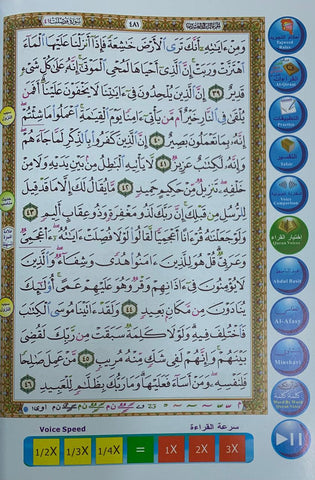 سورة فصلت ٤١
٤٨١
وَمِنْ ءَايَٰتِهِۦٓ أَنَّكَ تَرَى ٱلْأَرْضَ خَٰشِعَةً فَإِذَآ أَنزَلْنَا عَلَيْهَا ٱلْمَآءَ
ٱهْتَزَّتْ وَرَبَتْ ۚ إِنَّ ٱلَّذِىٓ أَحْيَاهَا لَمُحْىِ ٱلْمَوْتَىٰٓ ۚ إِنَّهُۥ عَلَىٰ كُلِّ شَىْءٍ
قَدِيرٌ ٣٩ إِنَّ ٱلَّذِينَ يُلْحِدُونَ فِىٓ ءَايَٰتِنَا لَا يَخْفَوْنَ عَلَيْنَآ ۗ أَفَمَن
يُلْقَىٰ فِى ٱلنَّارِ خَيْرٌ أَم مَّن يَأْتِىٓ ءَامِنًا يَوْمَ ٱلْقِيَٰمَةِ ۚ ٱعْمَلُوا۟ مَا شِئْتُمْ ۖ
إِنَّهُۥ بِمَا تَعْمَلُونَ بَصِيرٌ ٤٠ إِنَّ ٱلَّذِينَ كَفَرُوا۟ بِٱلذِّكْرِ لَمَّا جَآءَهُمْ ۖ
وَإِنَّهُۥ لَكِتَٰبٌ عَزِيزٌ ٤١ لَّا يَأْتِيهِ ٱلْبَٰطِلُ مِنۢ بَيْنِ يَدَيْهِ وَلَا مِنْ
خَلْفِهِۦ ۖ تَنزِيلٌ مِّنْ حَكِيمٍ حَمِيدٍ ٤٢ مَّا يُقَالُ لَكَ إِلَّا مَا قَدْ قِيلَ
لِلرُّسُلِ مِن قَبْلِكَ ۚ إِنَّ رَبَّكَ لَذُو مَغْفِرَةٍ وَذُو عِقَابٍ أَلِيمٍ ٤٣
وَلَوْ جَعَلْنَٰهُ قُرْءَانًا أَعْجَمِيًّا لَّقَالُوا۟ لَوْلَا فُصِّلَتْ ءَايَٰتُهُۥٓ ۖ ءَا۬عْجَمِىٌّ
وَعَرَبِىٌّ ۗ قُلْ هُوَ لِلَّذِينَ ءَامَنُوا۟ هُدًى وَشِفَآءٌ ۖ وَٱلَّذِينَ
لَا يُؤْمِنُونَ فِىٓ ءَاذَانِهِمْ وَقْرٌ وَهُوَ عَلَيْهِمْ عَمًى ۚ أُو۟لَٰٓئِكَ
يُنَادَوْنَ مِن مَّكَانٍۭ بَعِيدٍ ٤٤ وَلَقَدْ ءَاتَيْنَا مُوسَى ٱلْكِتَٰبَ
فَٱخْتُلِفَ فِيهِ ۗ وَلَوْلَا كَلِمَةٌ سَبَقَتْ مِن رَّبِّكَ لَقُضِىَ
بَيْنَهُمْ ۚ وَإِنَّهُمْ لَفِى شَكٍّ مِّنْهُ مُرِيبٍ ٤٥ مَّنْ عَمِلَ صَٰلِحًا
فَلِنَفْسِهِۦ ۖ وَمَنْ أَسَآءَ فَعَلَيْهَا ۗ وَمَا رَبُّكَ بِظَلَّٰمٍ لِّلْعَبِيدِ ٤٦
Tajweed Rules
Al-Quran
Practice
Tafsir
Voice Comparison
اختيار القراء
Quran Voices
Abdul Basit
Al-Afasy
Minshawi
كلمة كلمة
Word By Word Quran Voice
Voice Speed
سرعة القراءة
1/2X 1/3X 1/4X = 1X 2X 3X